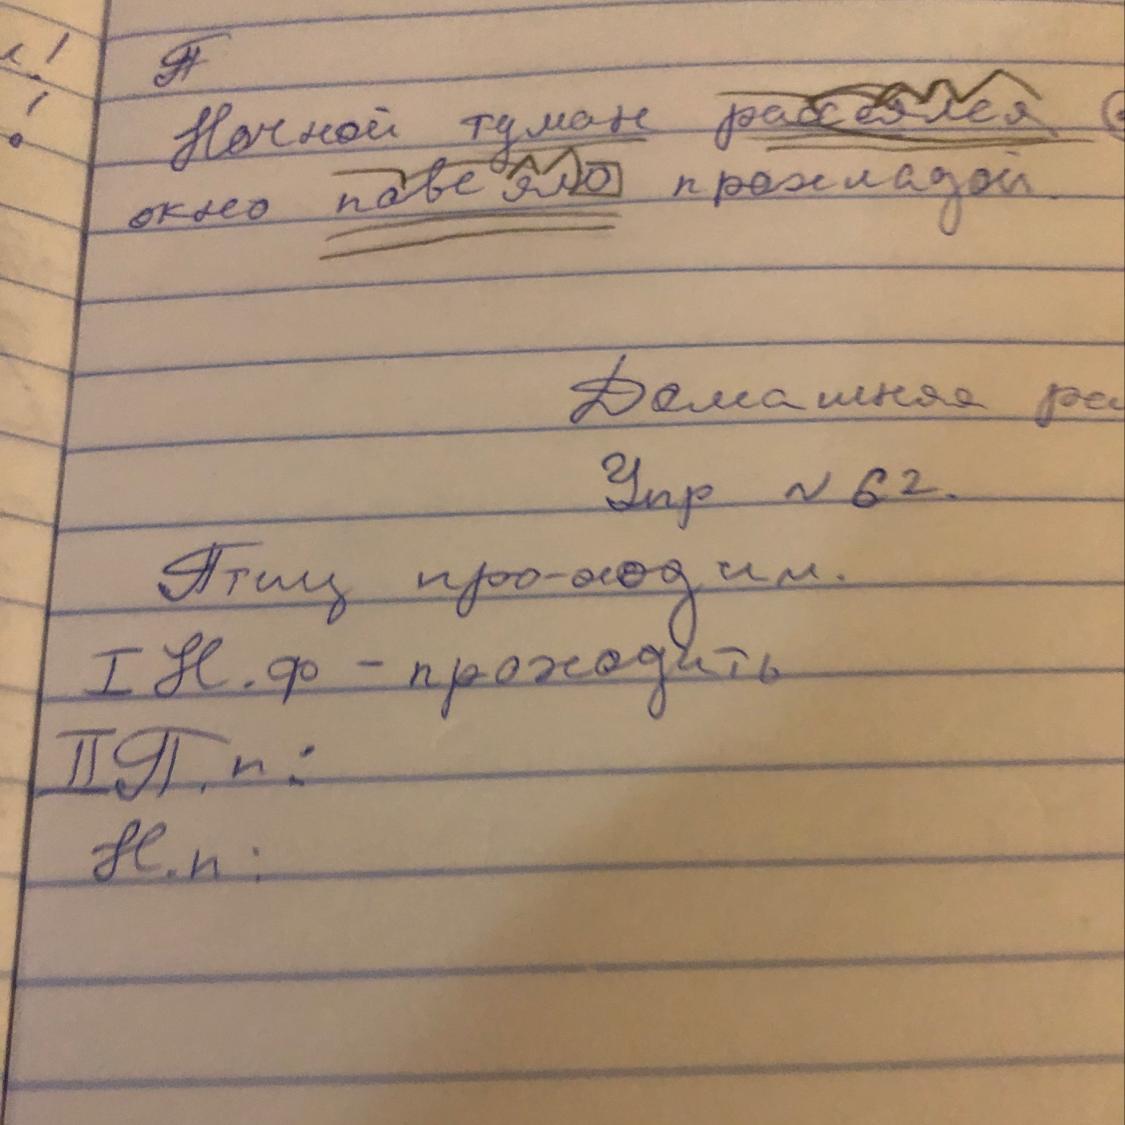 П
Ночной туман рассеялся
окно повеяло прохладой.
Домашняя ра
Упр № 62.
Птиц про-ходим.
I Н.ф - проходить
II П.п:
Н.п: